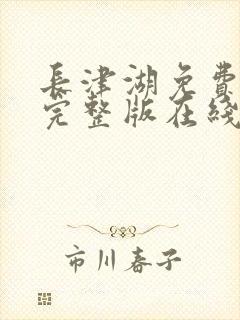 長津湖免費
完整版在綫
市川春子